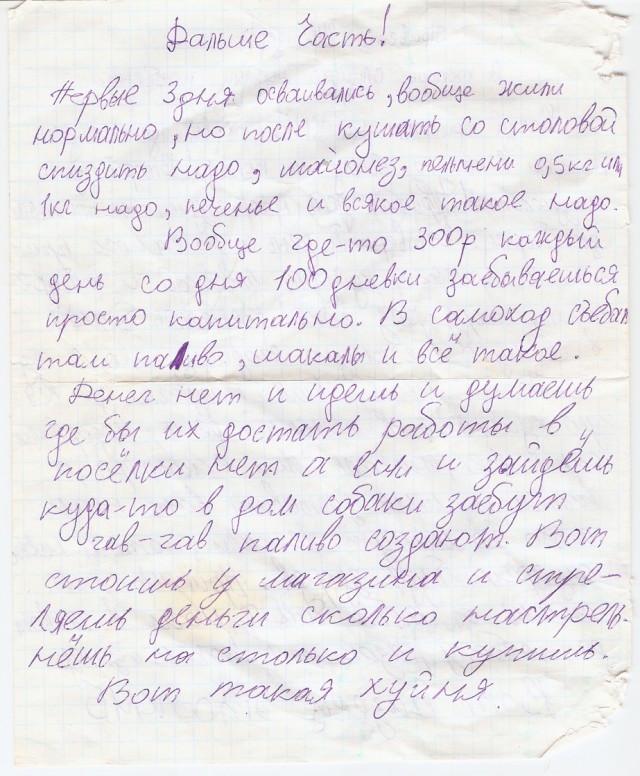 Дальше Часть!
Первые 3 дня осваивались, вообще жили
нормально, но после кушать со столовой
спиздить надо, майонез, пельмени 0,5 кг или
1кг надо, печенье и всякое такое надо.
Вообще где-то 300р каждый
день со дня 100дневки заёбываешься
просто капитально. В самоход съебал
там паливо, шакалы и всё такое.
Денег нет и идешь и думаешь
где бы их достать работы в
посёлки нет а если и зайдёшь
куда-то в дом собаки заебут
гав-гав паливо создают. Вот
стоишь у магазина и стре-
ляешь деньги сколько настрель-
нёшь на столько и купишь.
Вот такая хуйня.